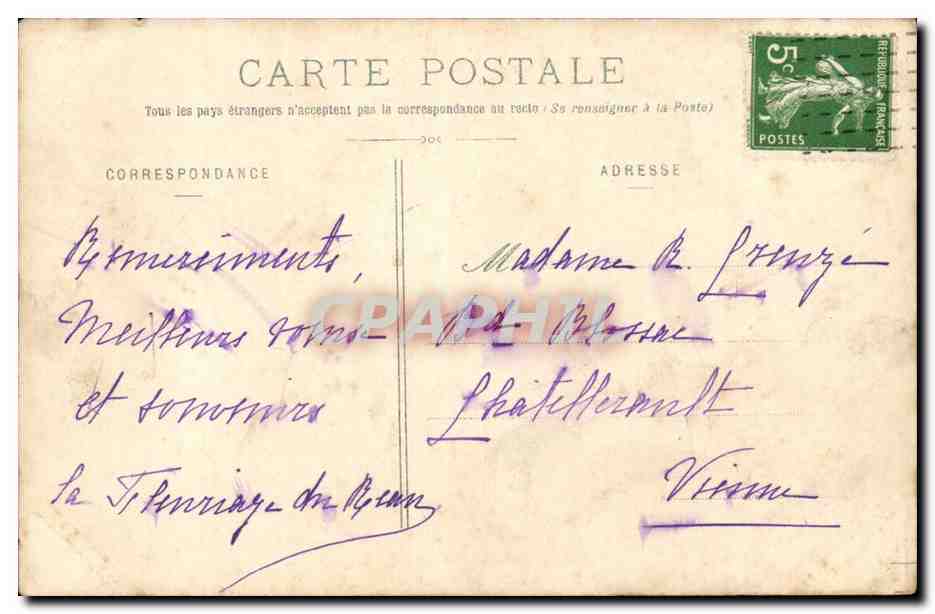 CARTE POSTALE
Tous les pays étrangers n'acceptent pas la correspondance au recto (Se renseigner à la Poste)
CORRESPONDANCE
Remerciments,
Meilleurs voeux
et souvenirs
la Fleuriaye du Réau
ADRESSE
Madame R. Grenzé
Bd Blossac
Châtellerault
Vienne
REPUBLIQUE FRANÇAISE
5c
POSTES
CPAPHIL